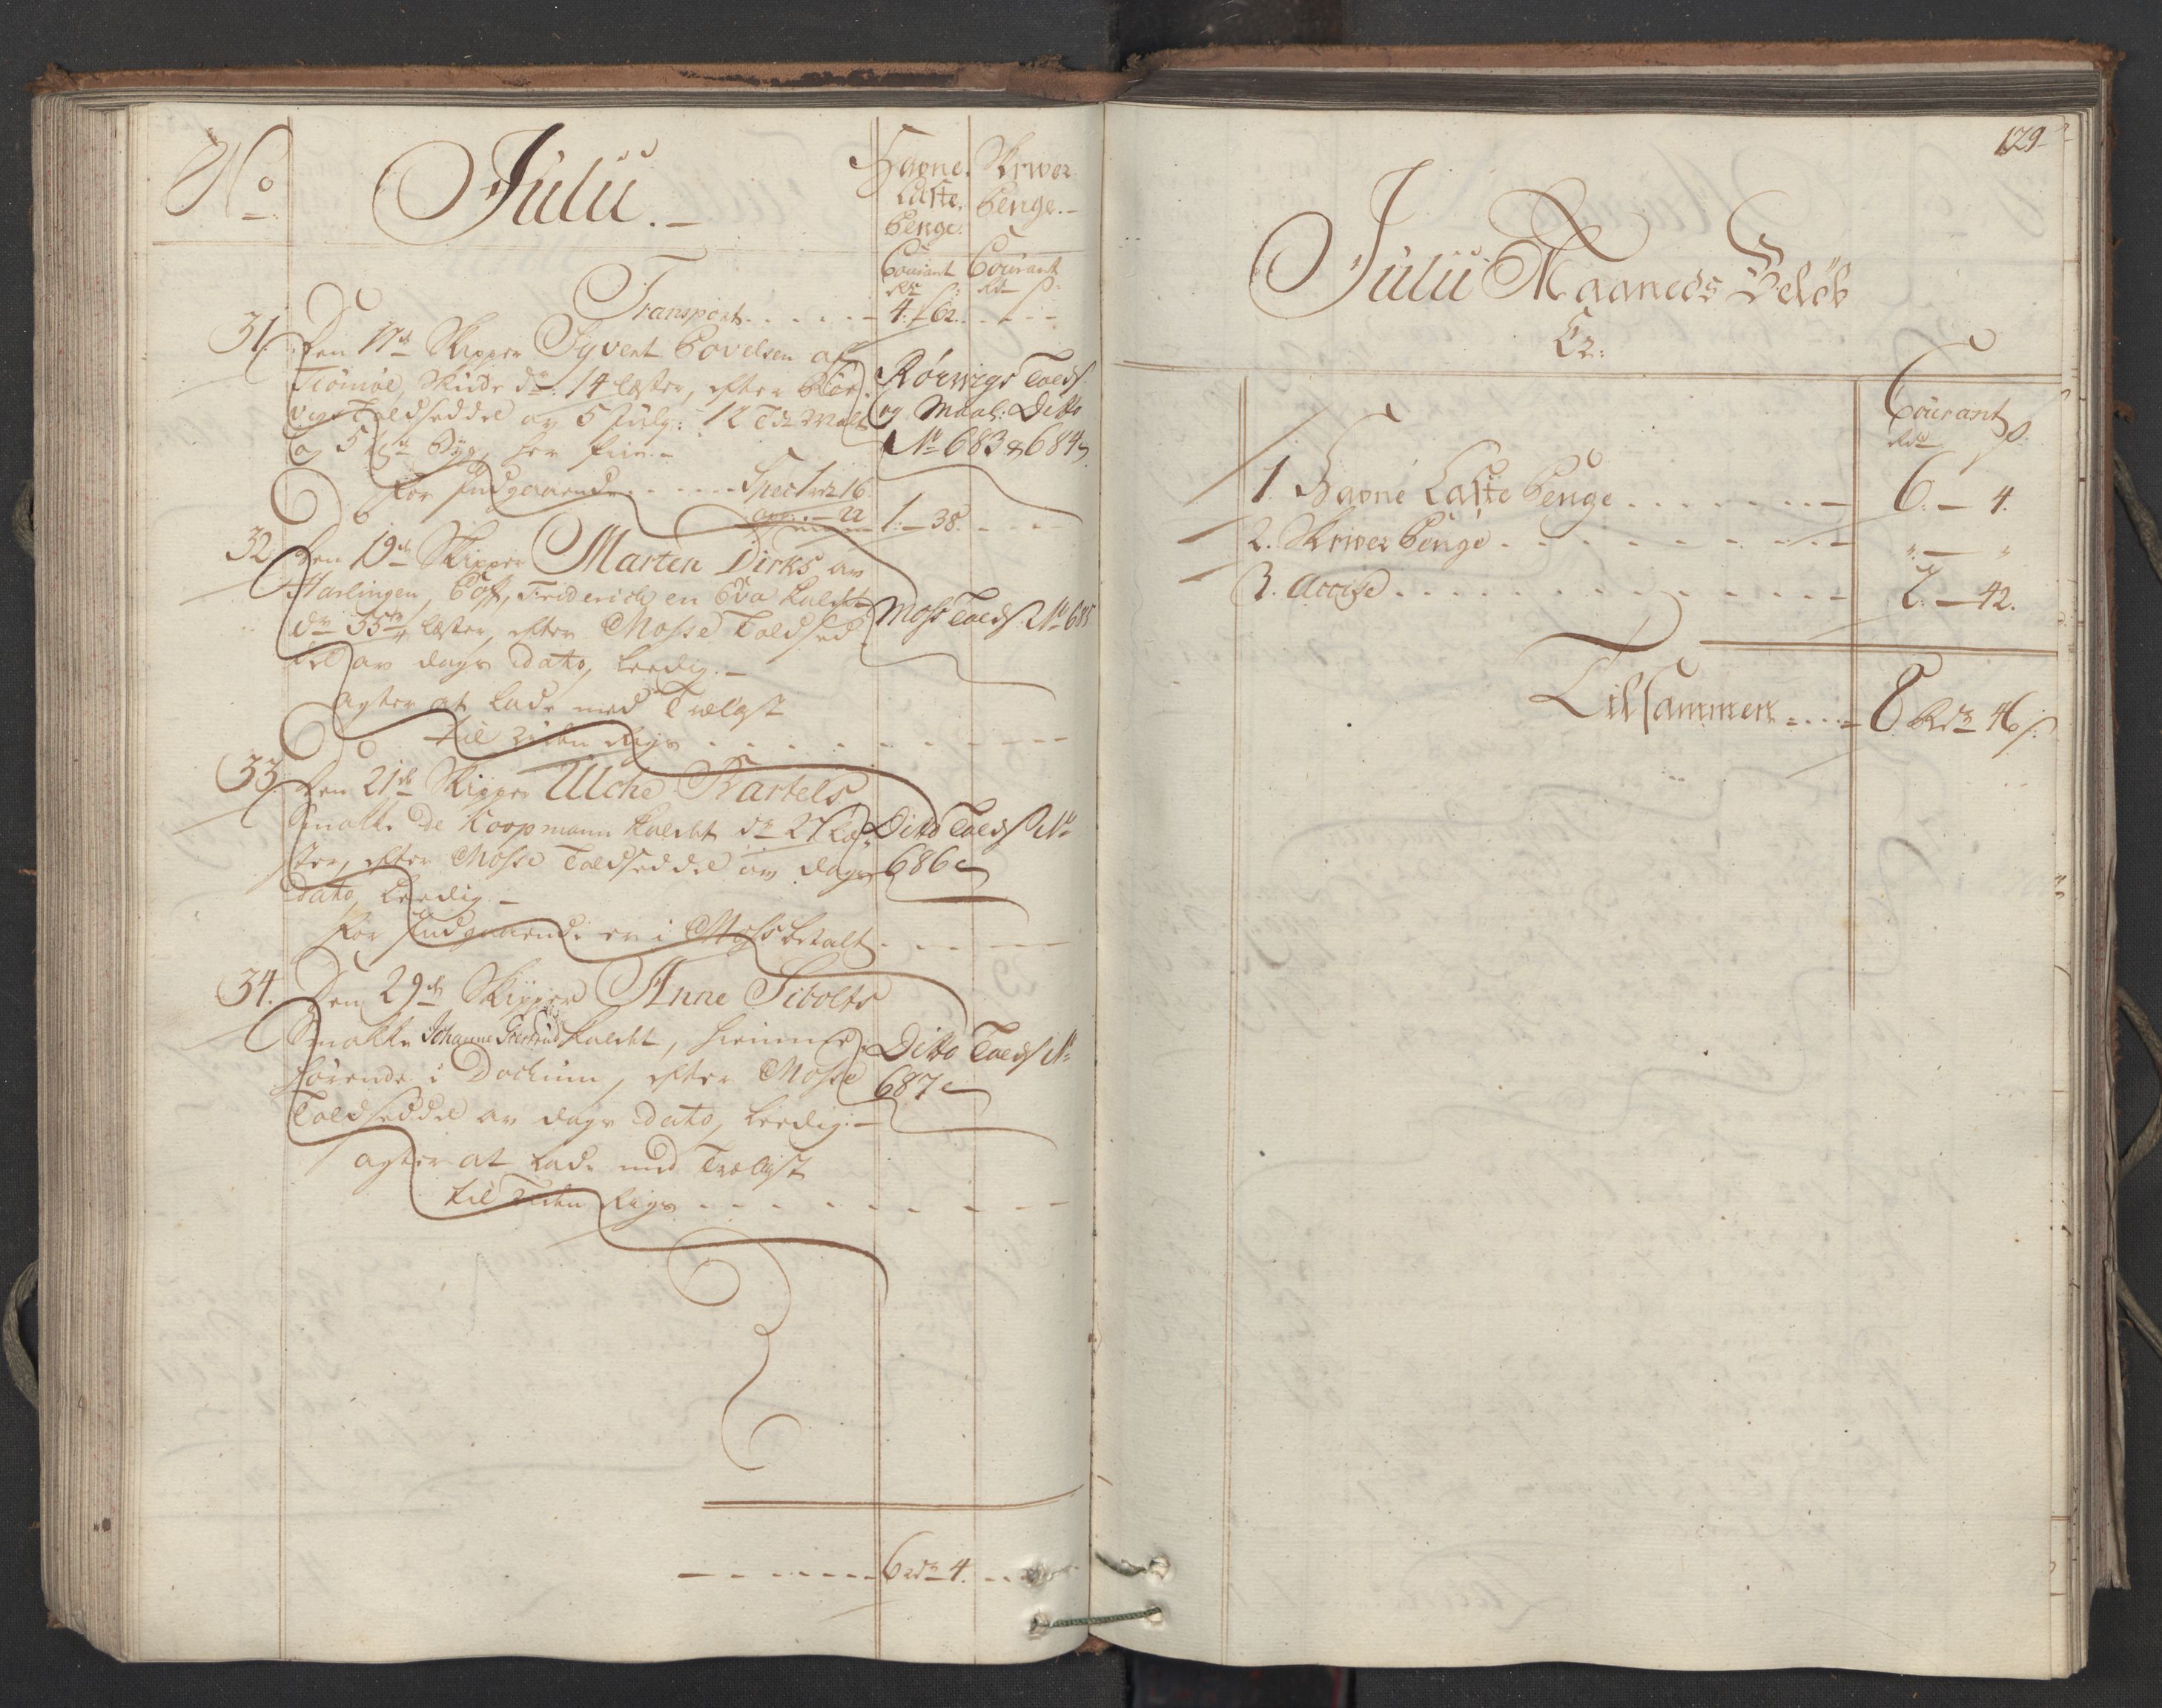 No
Julii.
Havne
Laste
Penge.
Skrwer
Penge.
Courant
Rdr ß:
Courant
Rdr ß:
Transport . . . . . 4: 62.
31. Den 17de Skipper Syvert Povelsen af
Tiömöe, Skude dr. 14 læster, efter Rör-
vigs Toldseddel av 5 Julii: 12 Tdr Malt
og 5 Byg, her fire.
Rörwigs Tolds.
og Maal: Ditto
No 683 & 684
for Indgaaende . . . . . Spec 1 rdr 16
22 1: — 38.
32. Den 19de Skipper Marten Dirks av
Harlingen, Coff, Friderich en Eva kaldet
dr 35 læster, efter Mosse Toldsed-
del av dags dato, leedig.
Moss Tolds. No 685
agter at lade med Trælast
til
33. Den 21de Skipper Ulche Bartels
Smakke De Koopmann kaldet dr 27 læ-
ster, efter Mosse Toldseddel av dags
dato, leedig.
Ditto Tolds No
686
for Indgaaende er i Moss betalt
34. Den 29de Skipper Anne Sibolts
Smakke Johanne Geertrud kaldet, hiemme-
hörende i Dockum, efter Mosse
Toldseddel av dags dato, leedig.
Ditto Tolds No
687
agter at lade med Trælast
til
6 rdr 4.
129
Julii Maaneds Belöb
Er:
Courant
Rdr ß.
1. Havne Laste Penge . . . . . 6. — 4.
2. Skrwer Penge . . . . . " — "
3. Accise . . . . . 2. — 42.
Tilsammen . . . 8 Rdr 46 ß.